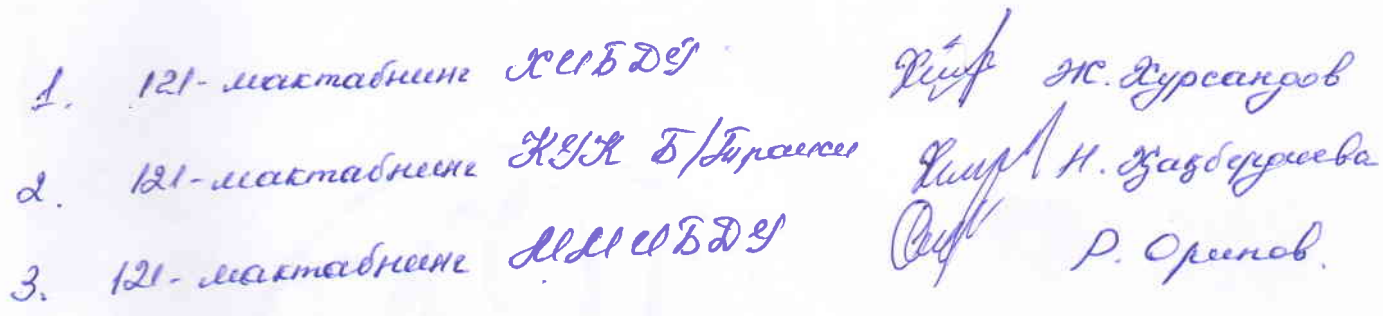 1. 121-мактабнинг ХИБДЎ Ж. Хурсандов
2. 121-мактабнинг КУК Б/ Н. Худбердиева
3. 121-мактабнинг ММИБДЎ Р. Орипов.